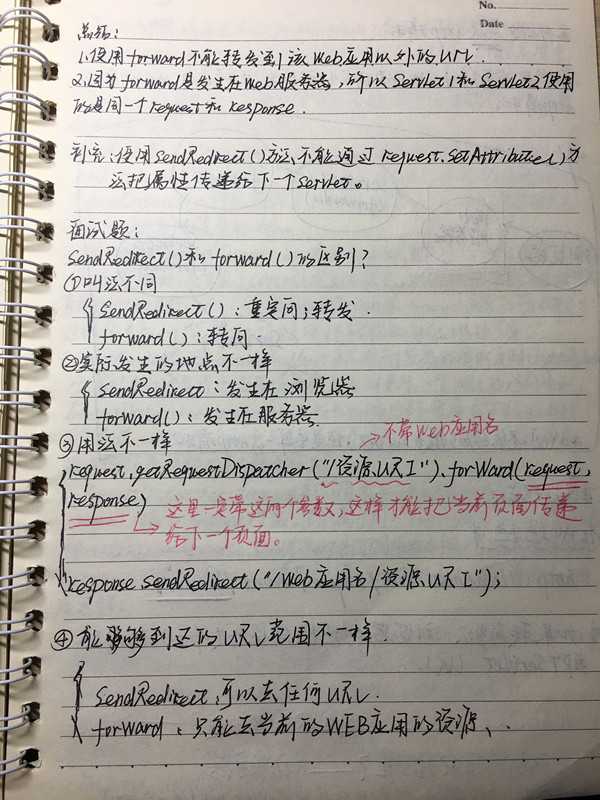 No.
Date
总结:
1.使用forward不能转发到该web应用以外的URL.
2.因为forward是发生在web服务器,所以Servlet1和Servlet2使用
的是同一个request和response.
补充:使用sendRedirect()方法不能通过request.setAttribute()方
法把属性传递给下一个Servlet。
面试题:
SendRedirect()和forward()的区别?
①叫法不同
SendRedirect():重定向;转发.
forward():转向.
②实际发生的地点不一样
SendRedirect:发生在浏览器
forward():发生在服务器
③用法不一样
不带web应用名
request.getRequestDispatcher("/资源URI").forward(request,
response)
这里一定带这两个参数,这样才能把当前页面传递
给下一个页面。
response.sendRedirect("/web应用名/资源URI");
④能够到达的URL范围不一样.
SendRedirect:可以去任何URL.
forward:只能去当前的WEB应用的资源、.